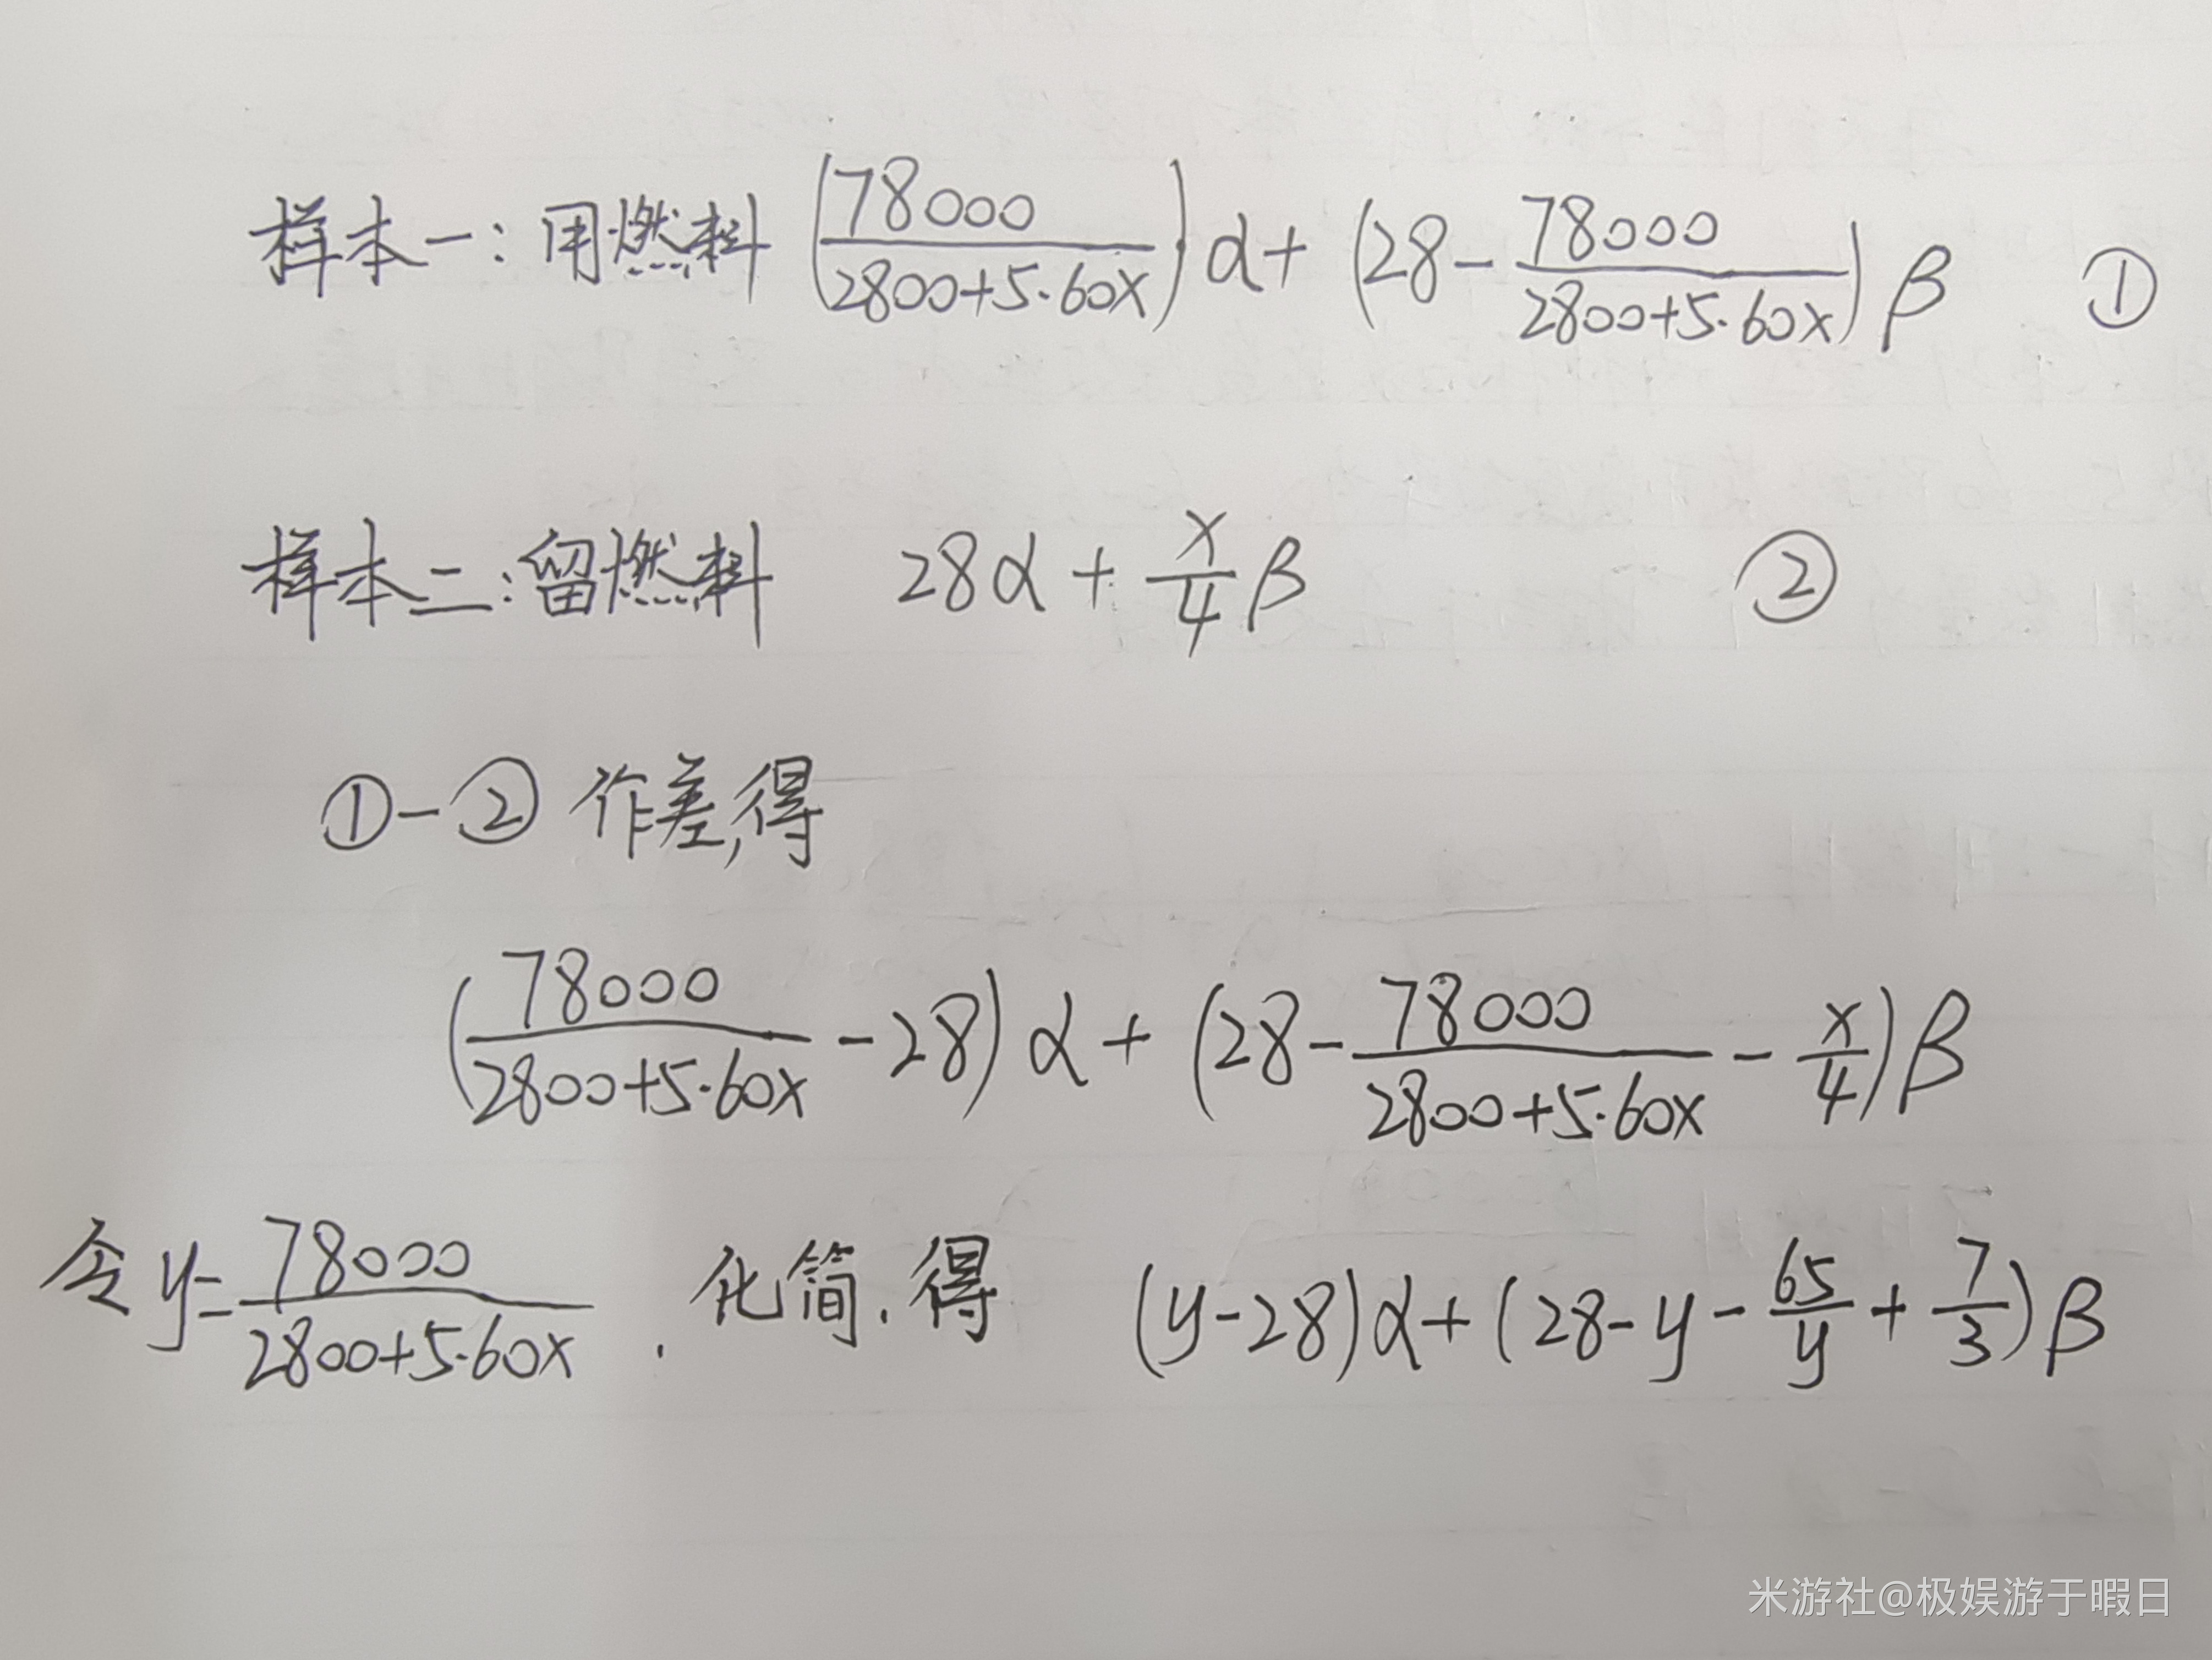 样本一：用燃料 (78000/(2800+5·60x))α+(28-78000/(2800+5·60x))β ①
样本二：留燃料 28α+x/4 β ②
①-②作差,得
(78000/(2800+5·60x)-28)α+(28-78000/(2800+5·60x)-x/4)β
令y=78000/(2800+5·60x). 化简.得 (y-28)α+(28-y-65/y+7/3)β
米游社@极娱游于暇日